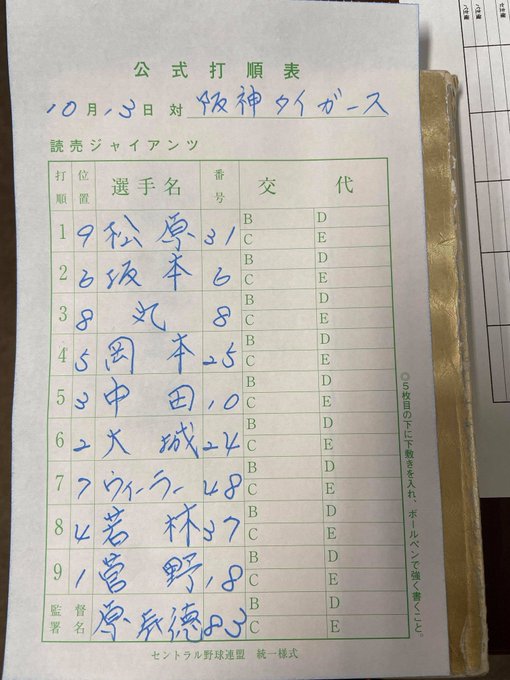 公式打順表
10月13日 対 阪神タイガース
読売ジャイアンツ
打順 位置 選手名 番号 交代
1 9 松原 31 B D C E
2 6 坂本 6 B D C E
3 8 丸 8 B D C E
4 5 岡本 25 B D C E
5 3 中田 10 B D C E
6 2 大城 24 B D C E
7 7 ウィーラー 48 B D C E
8 4 若林 37 B D C E
9 1 菅野 18 B D C E
監督署名 原辰徳 83 B D C E
セントラル野球連盟 統一様式
◎5枚目の下に下敷きを入れ、ボールペンで強く書くこと。